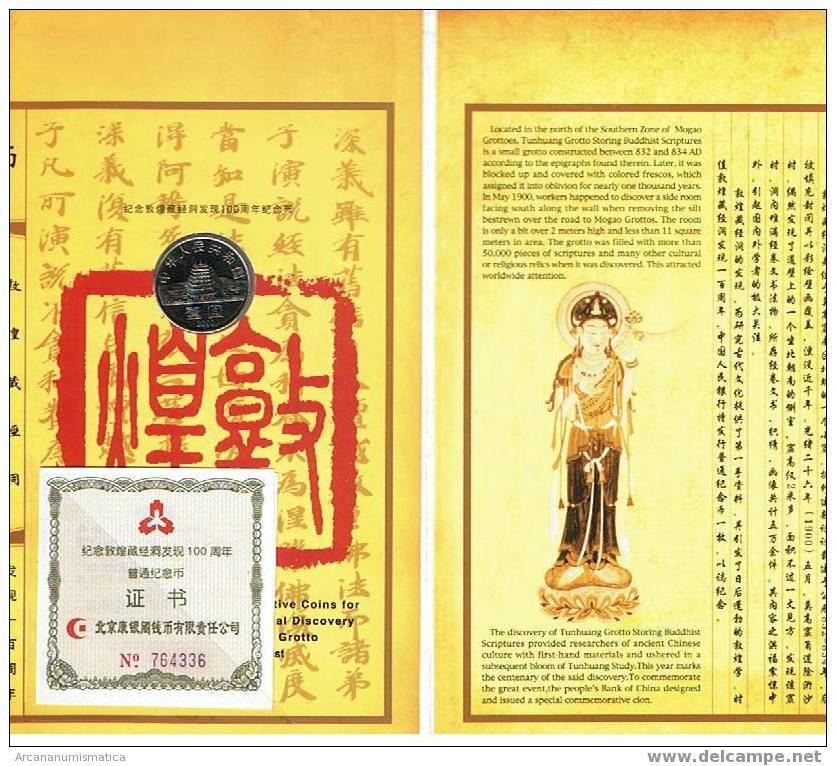 纪念敦煌藏经洞发现100周年纪念币
中华人民共和国
壹圆
2000
敦煌
敦煌藏经洞
发现一百周年
纪念敦煌藏经洞发现 100 周年
普通纪念币
证书
北京康银阁钱币有限责任公司
Nº 764336
tive Coins for
al Discovery
Grotto
st
Located in the north of the Southern Zone of Mogao
Grottoes, Tunhuang Grotto Storing Buddhist Scriptures
is a small grotto constructed between 832 and 834 AD
according to the epigraphs found therein. Later, it was
blocked up and covered with colored frescos, which
assigned it into oblivion for nearly one thousand years.
In May 1900, workers happened to discover a side room
facing south along the wall when removing the silt
bestrewn over the road to Mogao Grottos. The room
is only a bit over 2 meters high and less than 11 square
meters in area. The grotto was filled with more than
50,000 pieces of scriptures and many other cultural
or religious relics when it was discovered. This attracted
worldwide attention.
The discovery of Tunhuang Grotto Storing Buddhist
Scriptures provided researchers of ancient Chinese
culture with first-hand materials and ushered in a
subsequent bloom of Tunhuang Study.This year marks
the centenary of the said discovery.To commemorate
the great event,the people's Bank of China designed
and issued a special commemorative cion.
故填充封闭并以彩绘壁画覆盖,湮没近千年。光绪二十六年(1900)五月,莫高窟甬道除淤沙
时,偶然发现了道壁上的一个坐北朝南的侧室,窟高仅2米多,面积不过一丈见方,发现该窟
时,洞内堆满经卷文书法物,所存经卷文书、织绣、画像共计五万余件,其内容之洪福震惊中
外,引起国内外学者的极大关注。
敦煌藏经洞的发现,为研究古代文化提供了第一手资料,并引发了日后蓬勃的敦煌学,时
值敦煌藏经洞发现一百周年,中国人民银行特发行普通纪念币一枚,以志纪念。
Arcananumismatica
www.delcampe.net